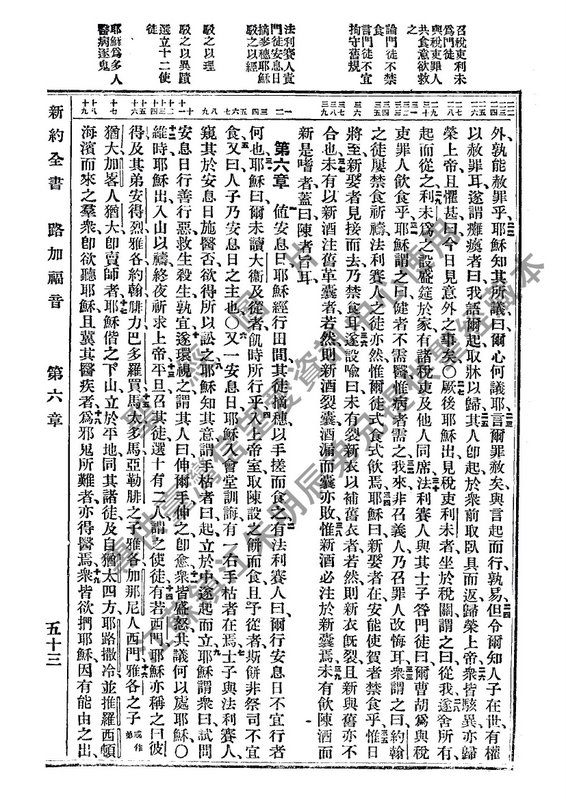 召稅吏利未
爲門徒
與稅吏罪人
共食意欲救
之
論門徒不禁
言門徒不宜
拘守舊規
法利賽人責
門徒安息日
摘麥穗耶穌
駁之以經
駁之以理
駁之以異蹟
選立十二使
徒
耶穌爲多人
醫病逐鬼
外孰能赦罪乎、耶穌知其所議曰、爾心何議耶、言爾罪赦矣、與言起而行、孰易、但令爾知人子在世有權
以赦罪耳、遂謂癱瘓者曰、我語爾起、取牀以歸、其人卽起於衆前、取臥具而返、歸榮上帝、衆皆駭異、亦歸
榮上帝、且懼甚曰、今日見意外之事〇厥後耶穌出、見稅吏利未者、坐於稅關、謂之曰、從我、遂舍所有、
起而從之、利未爲之設盛筵於家、有諸稅吏及他人同席、法利賽人與其士子咎門徒曰、爾曹胡爲與稅
吏罪人飲食乎、耶穌謂之曰、健者不需醫、惟病者需之、我來非召義人、乃召罪人改悔耳、衆謂之曰、約翰
之徒屢禁食祈禱、法利賽人之徒亦然、惟爾徒式食式飲焉、耶穌曰、新娶者在、安能使賀者禁食乎、惟日
將至、新娶者見接而去、乃禁食耳、遂設喻曰、未有裂新衣以補舊衣者、若然、則新衣旣裂、且新與舊亦不
合也、未有以新酒注舊革囊者、若然、則新酒裂囊、酒漏而囊亦敗、惟新酒必注於新囊焉、未有飲陳酒而
新是嗜者、蓋曰陳者旨耳、
第六章 值安息日、耶穌經行田間、其徒摘穗、以手搓而食、有法利賽人曰、爾行安息日不宜行者
何也、耶穌曰、爾未讀大衛及從者飢時所行乎、入上帝室、取陳設之餅而食、且予從者、斯餅非祭司不宜
食、又曰、人子乃安息日之主也〇又一安息日、耶穌入會堂訓誨、有一右手枯者在焉、士子與法利賽人、
窺其於安息日施醫否、欲得所以訟之、耶穌知其意、謂手枯者曰、起、立於中、遂起而立、耶穌謂衆曰、試問
安息日行善行惡、救生殺生、孰宜、遂環視之、謂其人曰、伸爾手、伸之卽愈、衆皆盛怒、共議何以處耶穌〇
維時耶穌出、入山以禱、終夜祈求上帝、平旦召其徒、選十有二人、謂之使徒、有若西門、耶穌亦稱之曰彼
得、及其弟安得烈、雅各、約翰、腓力、巴多羅買、馬太、多馬、亞勒腓之子雅各、加那尼人西門、雅各之子或作弟
猶大、加畧人猶大、卽賣師者、耶穌偕之下山、立於平地、同其諸徒、及自猶太四方、耶路撒冷、並推羅西頓
海濱而來之羣衆、卽欲聽耶穌、且冀其醫疾者、爲邪鬼所難者、亦得醫焉、衆皆欲捫耶穌、因有能由之出、
新約全書 路加福音 第六章 五十三